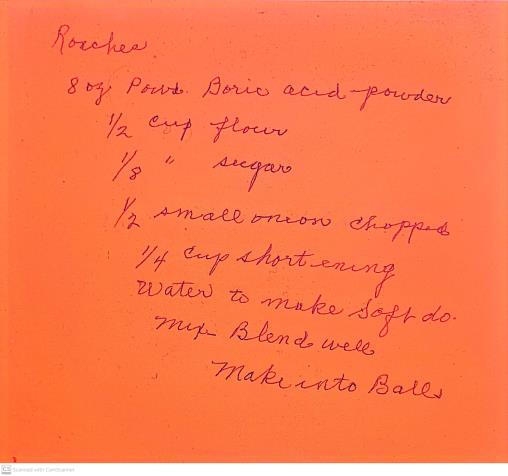 Roaches
8 oz Powd. Boric acid-powder
1/2 cup flour
1/8 " sugar
1/2 small onion chopped
1/4 cup shortening
Water to make soft do.
Mix Blend well
Make into Balls
CS Scanned with CamScanner